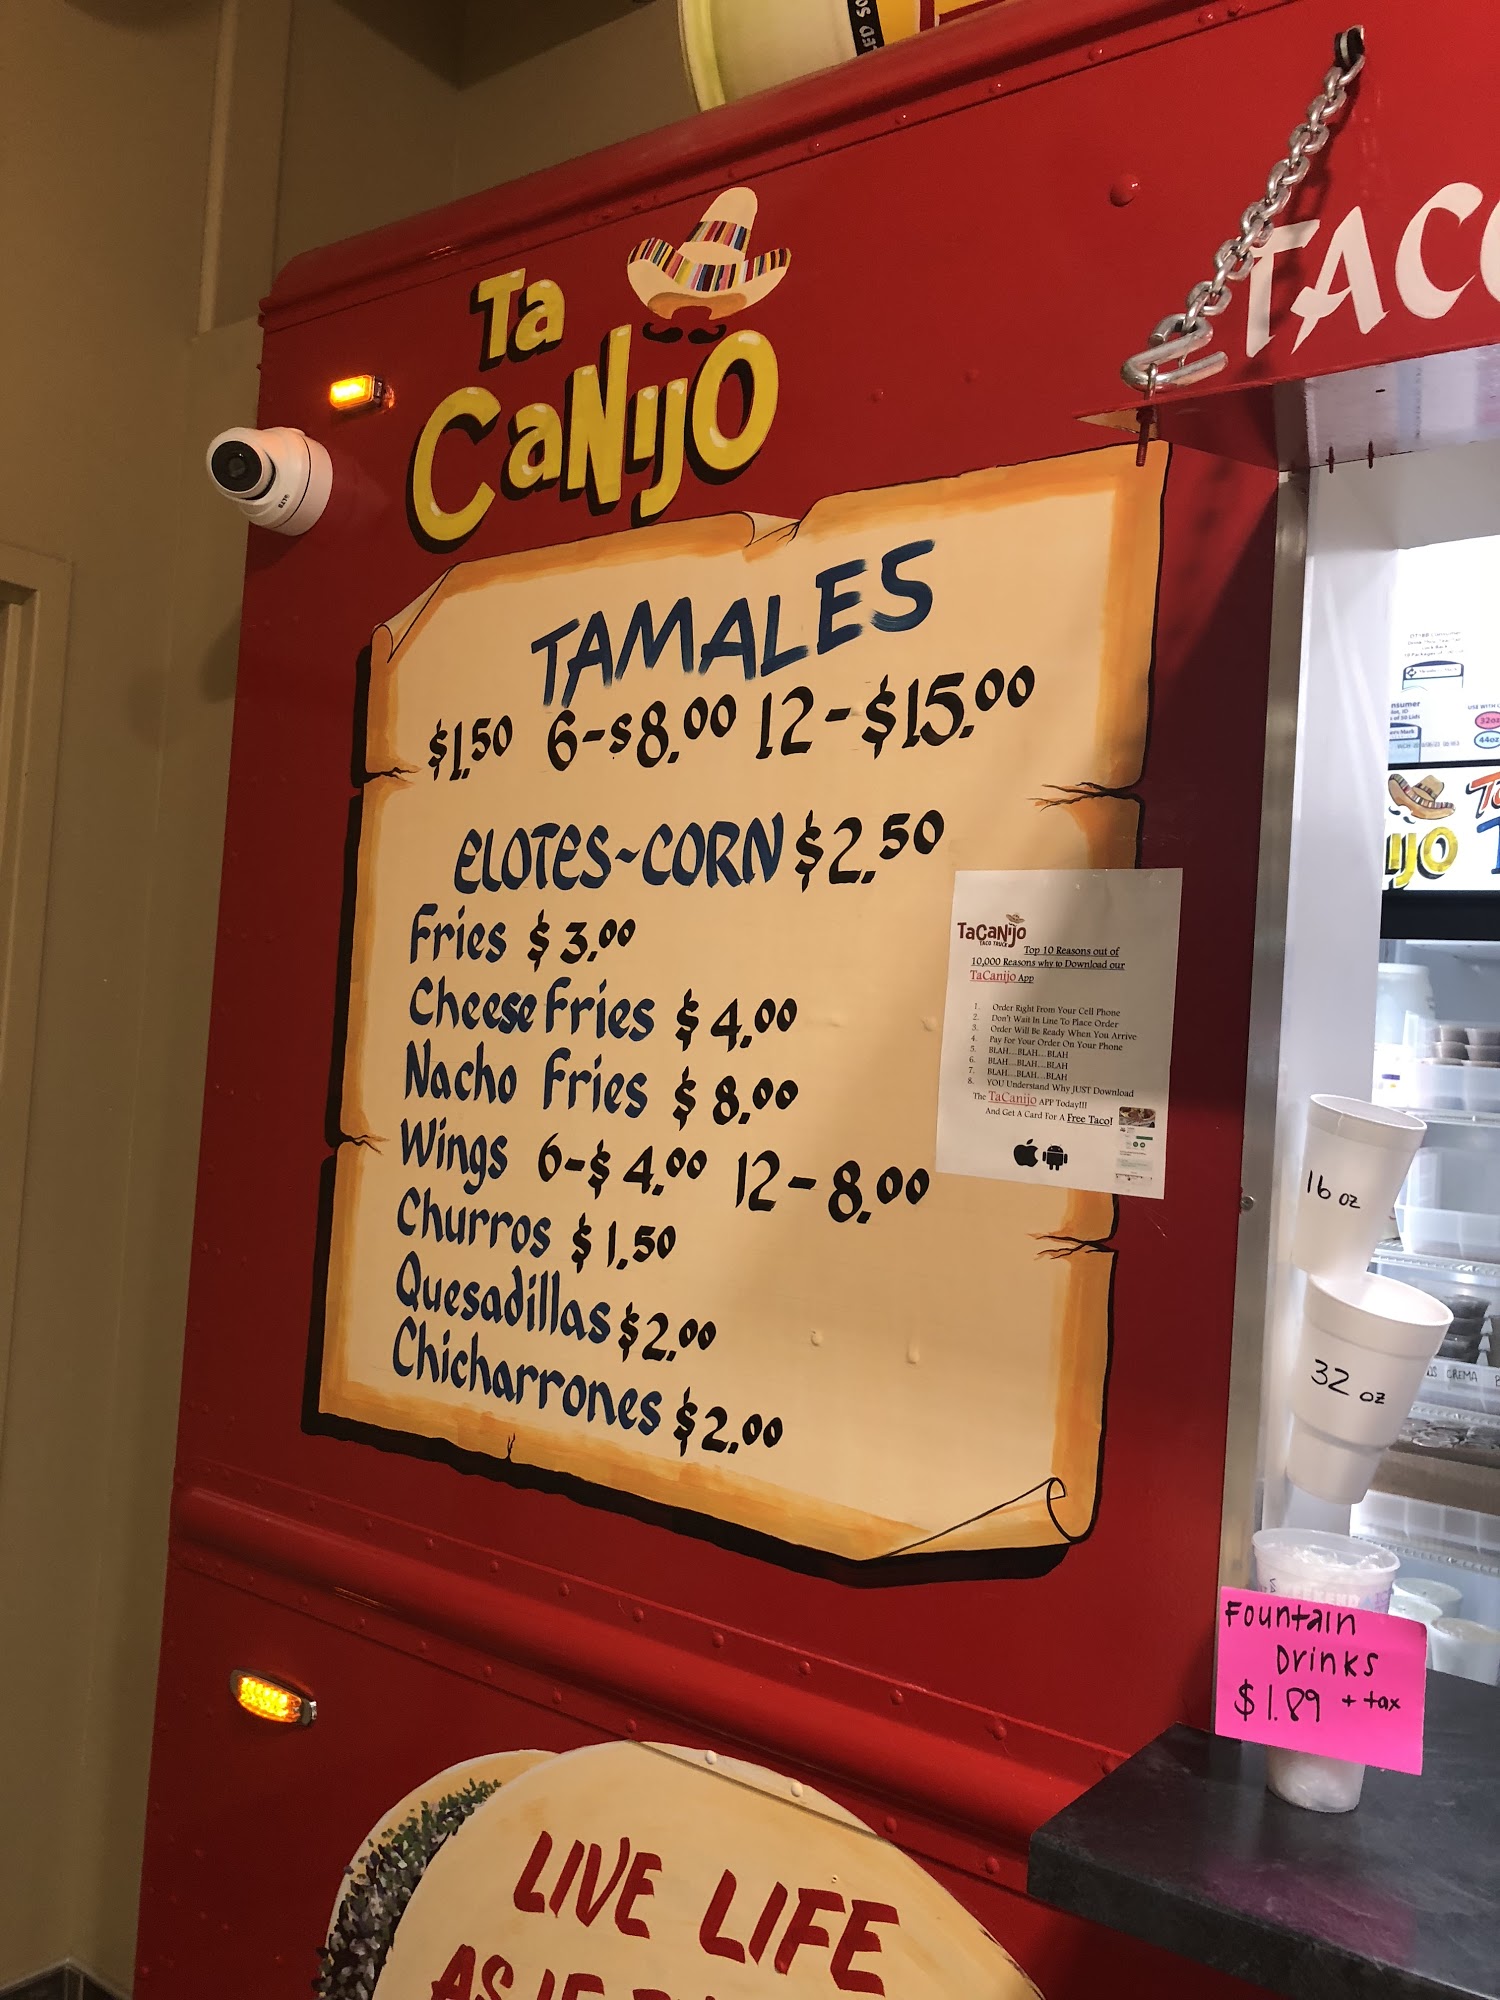 Ta
CaNijO
TACO
TAMALES
$1.50 6-$8.00 12-$15.00
ELOTES~CORN $2.50
Fries $3.00
Cheese Fries $4.00
Nacho Fries $8.00
Wings 6-$4.00 12-8.00
Churros $1.50
Quesadillas $2.00
Chicharrones $2.00
TaCaNijo
TACO TRUCK
Top 10 Reasons out of
10,000 Reasons why to Download our
TaCanijo App
1. Order Right From Your Cell Phone
2. Don't Wait In Line To Place Order
3. Order Will Be Ready When You Arrive
4. Pay For Your Order On Your Phone
5. BLAH....BLAH....BLAH
6. BLAH....BLAH....BLAH
7. BLAH....BLAH....BLAH
8. YOU Understand Why JUST Download
The TaCanijo APP Today!!!
And Get A Card For A Free Taco!
32oz
44oz
16 oz
32 oz
CREMA
Fountain
Drinks
$1.89 + tax
LIVE LIFE
AS IF